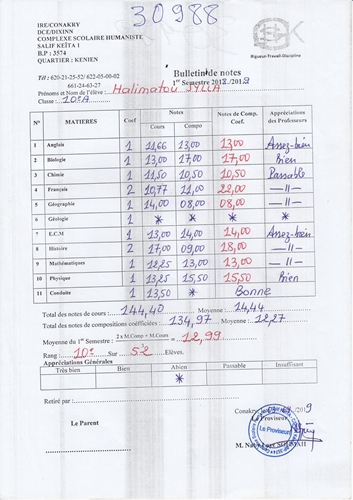 30988
IRE/CONAKRY
DCE/DIXINN
COMPLEXE SCOLAIRE HUMANISTE
SALIF KEÏTA 1
B.P : 3574
QUARTIER : KENIEN
Rigueur-Travail-Discipline
Tél : 620-21-25-52/ 622-05-00-02
661-24-63-27
Bulletin de notes
1er Semestre 2018/2019
Prénoms et Nom de l'élève : Halimatou SYLLA
Classe : 10e A
N° MATIERES Coef Notes Notes de Comp. Coef. Appréciations des Professeurs
Cours Compo
1 Anglais 1 11,66 13,00 13,00 Assez-bien
2 Biologie 1 13,00 17,00 17,00 Bien
3 Chimie 1 11,50 10,50 10,50 Passable
4 Français 2 10,77 11,00 22,00 —//—
5 Géographie 1 14,00 08,00 08,00 —//—
6 Géologie 1 * * * *
7 E.C.M 1 13,00 14,00 14,00 Assez-bien
8 Histoire 2 17,00 09,00 18,00 —//—
9 Mathématiques 1 12,25 13,00 13,00 —//—
10 Physique 1 13,25 15,50 15,50 Bien
11 Conduite 1 13,50 * Bonne
Total des notes de cours : 144,40 Moyenne : 14,44
Total des notes de compositions coéfficiées : 134,97 Moyenne : 12,27
Moyenne du 1er Semestre : 2 x M.Comp + M.Cours = 12,99
3
Rang : 10e Sur 52 Elèves.
Appréciations Générales
Très bien Bien Abien Passable Insuffisant
*
Retiré par :
Conakry, le /2019
Le Parent
Le Proviseur
Le Proviseur